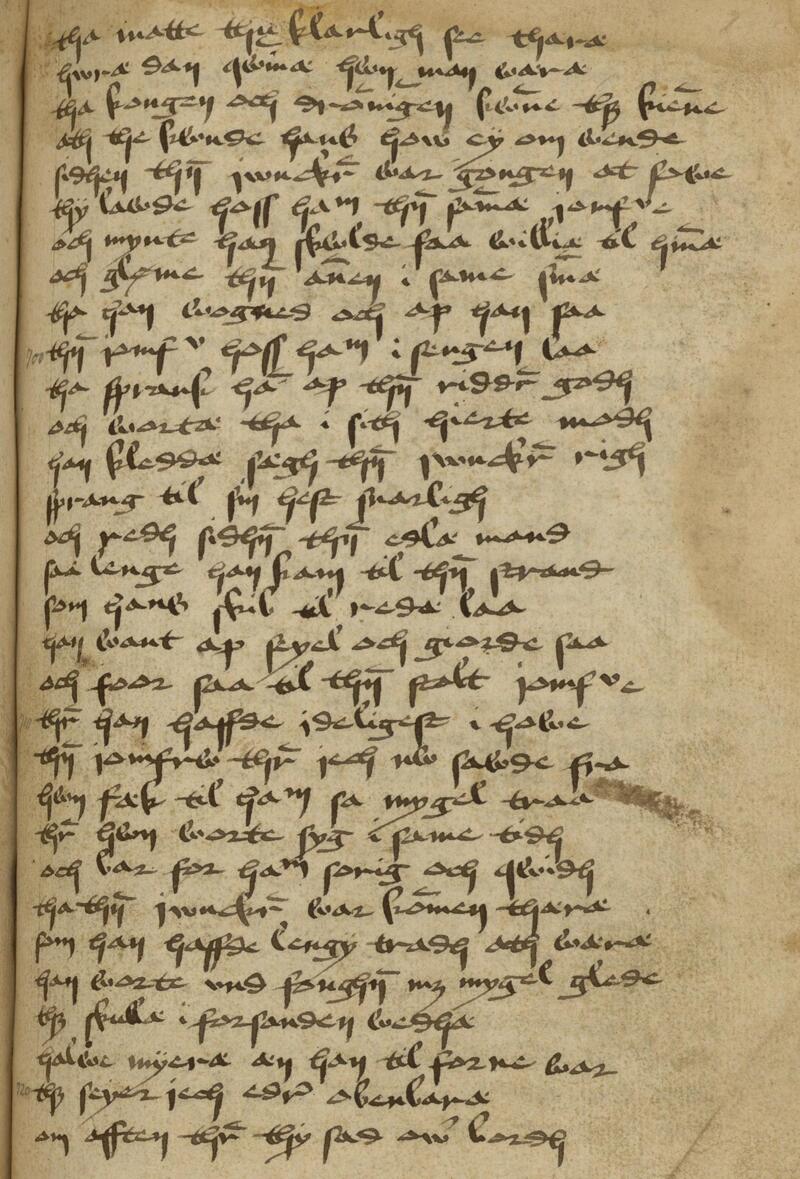 tha matte thu klarligh see thara
hwræ dan qwinæ hwn man wara
tha kongen och dronīgen kwn̄e thz kien̄e
ath the kwnde hans how ey om wende
sidhen thn̄ jwnckr̄ war gongen at sowe
thy lawde hoss ham thn̄ sam̄æ jomfrve
och mynte han skwlde faa williæ til hn̄næ
och gløme thn̄ an̄en i same sin̄æ
tha han wognes och ap han saa
700 thn̄ jomfrv hoss ham i sengen laa
tha sprank hā ap thn̄ riddr̄ godh
och wortæ tha i sith hierte modh
han kleddæ sægh thn̄ jwnckr̄ righ
sprang til sin hest snarligh
och redh sidhn̄ thn̄ edlæ mand
saa lenge han kam til thn̄ strand
som hans skib til redæ laa
han want ap seyel och giorde saa
och foor saa til thn̄ stolt jomfrve
thr̄ han haffde jdeligest i howe
thn̄ jomfrw thr̄ jech nw sawde fra
hwn fæk til ham sa mygel traa
thr̄ hwn worte syg i same tidh
och bar for ham sorig och qwidh
tha thn̄ jwnckr̄ war kom̄en thæræ
som han haffde lengy tradh ath wæræ
han worte vnd fonghn̄ mz mygel glede
thz skullæ i forsanden wedhæ
halwe myeræ æn han til forne war
720 thz seyer jech edr̄ obenbaræ
om afften thr̄ thy sad ow̄ bordh